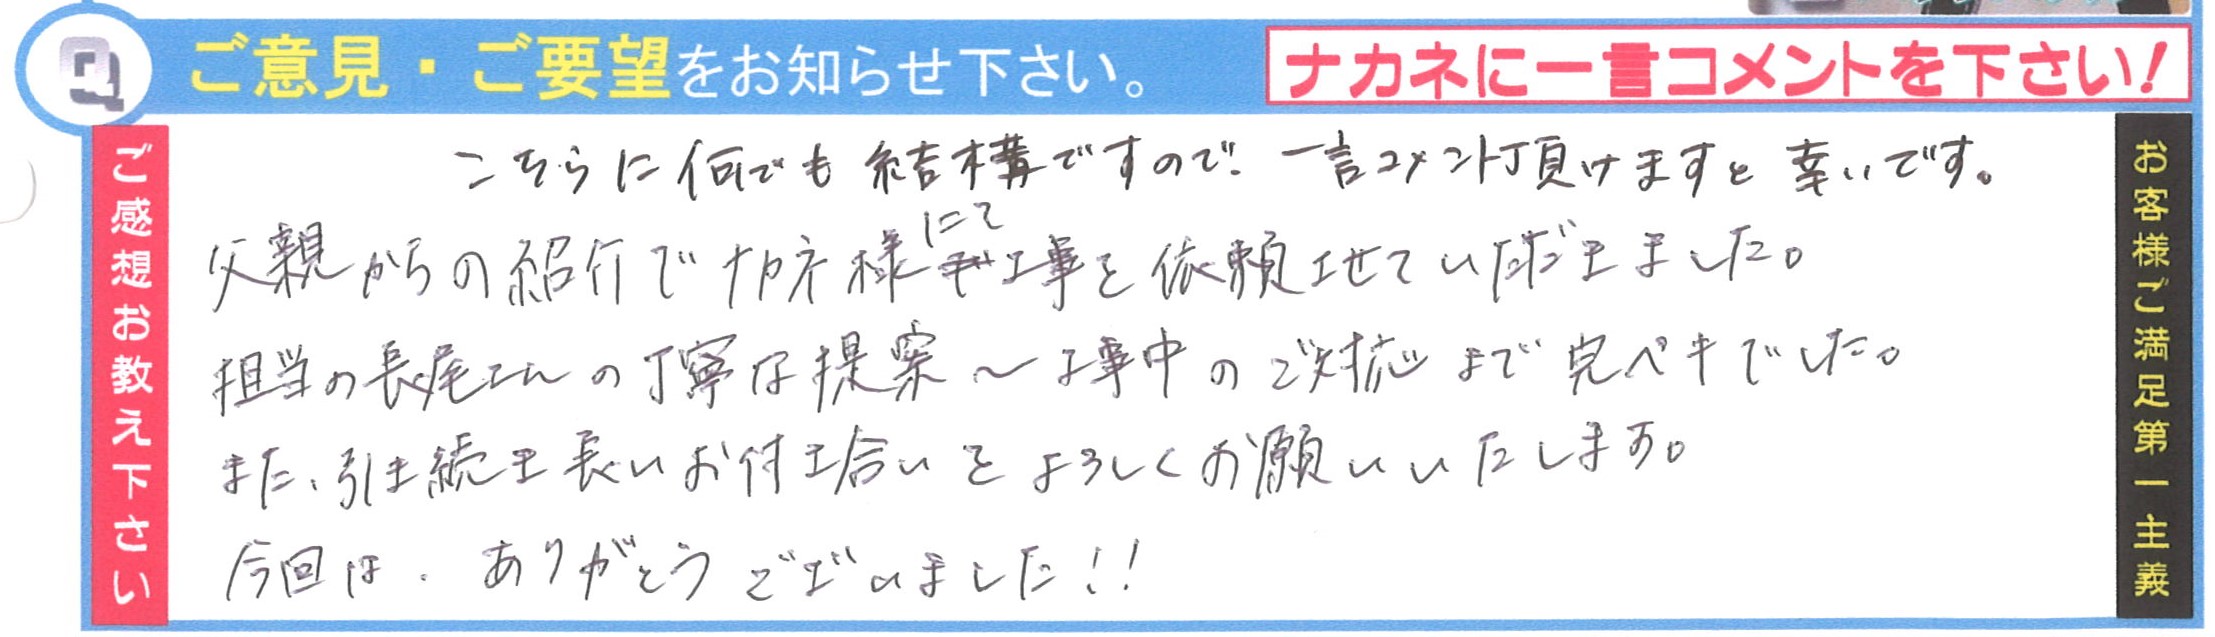 Q ご意見・ご要望をお知らせ下さい。 ナカネに一言コメントを下さい!
ご感想お教え下さい
こちらに何でも結構ですので、一言コメント頂けますと幸いです。
父親からの紹介でナカネ様にて工事を依頼させていただきました。
担当の長尾さんの丁寧な提案~工事中のご対応まで完ペキでした。
また、引き続き長いお付き合いをよろしくお願いいたします。
今回は、ありがとうございました!!
お客様ご満足第一主義